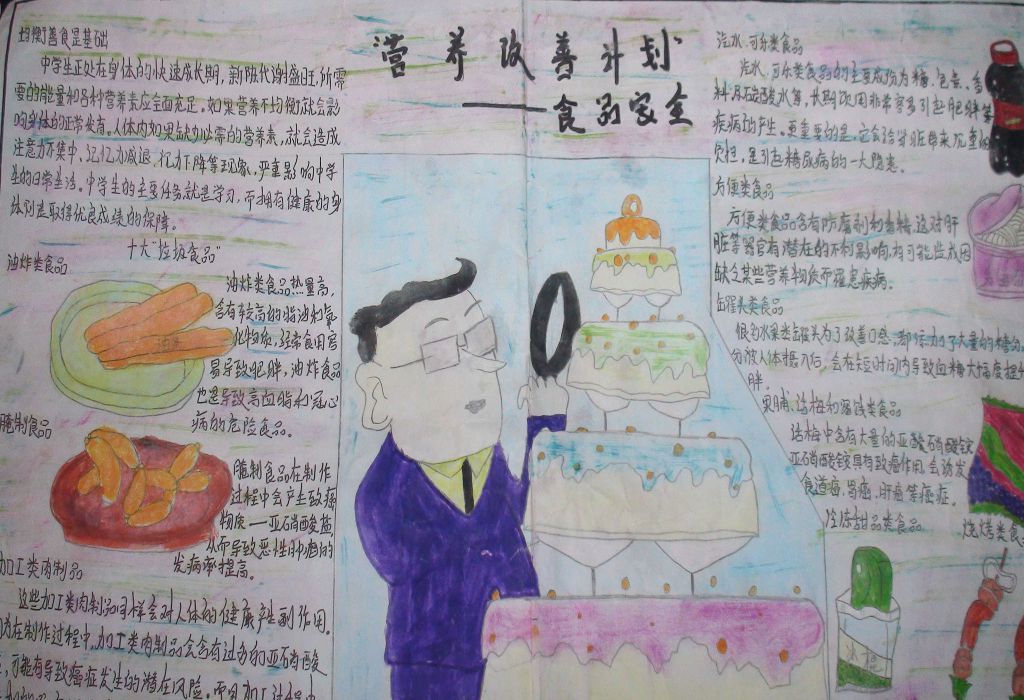 营养改善计划
——食品安全
均衡善食是基础
中学生正处在身体的快速成长期,新陈代谢盛旺,所需
要的能量和各种营养素应全面充足,如果营养不均衡就会影
响身体的正常发育。人体内如果缺少必需的营养素,就会造成
注意力不集中、记忆力减退、抵抗力下降等现象,严重影响中学
生的日常生活。中学生的主要任务就是学习,而拥有健康的身
体则是取得优良成绩的保障。
十大"垃圾食品"
油炸类食品
油炸类食品热量高,
含有较高的脂油和氧
化物质,经常食用容
易导致肥胖,油炸食品
也是导致高血脂和冠心
病的危险食品。
腌制食品
腌制食品在制作
过程中会产生致癌
物质——亚硝酸盐,
从而导致恶性肿瘤的
发病率提高。
加工类肉制品
这些加工类肉制品同样会对人体的健康产生副作用。
在制作过程中,加工类肉制品会含有过多的亚硝酸
可能有导致癌症发生的潜在风险。
汽水、可乐类食品
汽水、可乐类食品的主要成份为糖、色素、香
料及碳酸水等,长期饮用非常容易引起肥胖等
疾病的产生。更重要的是,它会给肾脏带来沉重的
负担,是引起糖尿病的一大隐患。
方便类食品
方便类食品含有防腐剂和香精,这对肝
脏等器官有潜在的不利影响,有可能造成因
缺乏某些营养物质而罹患疾病。
罐头类食品
很多水果类罐头为了改善口感,都添加了大量的糖分,
分被人体摄入后,会在短时间内导致血糖大幅度提升
胖。
果脯、话梅和蜜饯类食品
话梅中含有大量的亚酸硝酸铵
亚硝酸铵具有致癌作用,会诱发
食道癌、胃癌、肝癌等癌症。
冷冻甜品类食品
烧烤类食
冰棍